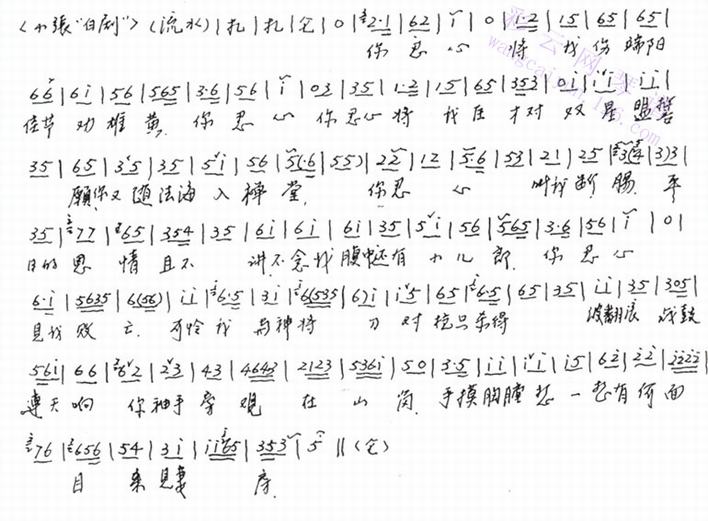 〈小張"白剧"〉(流水)|扎|扎|仓|0|2·1|62|i|0|1·2|15|65|65|
你忍心 将我伤 端阳
66|6i|56|565|3·6|56|i|03|35|1·2|15|65|353|0i|ii|ii|
佳节劝雄黄.你忍心你忍心将我 才对双星盟誓
35|65|35|35|5i|56|5(·6|55)|22|12|5·6|53|21|25|3)3|
愿你又随法海入禅堂. 你忍心 叫我断肠.平
35|77|65|354|35|6i|6i|6i|35|5i|56|565|3·6|56|i|0|
日的恩情且不讲不念我腹中还有小儿郎.你忍心
6·i|5635|6(56)|ii|6·5|3i|6(535|6)i|i5|65|6·5|65|35|ii|35|305|
见我败亡.可怜我与神将刀对枪只杀得 波翻浪 战鼓
56i|66|62|23|43|4643|2123|5361|50|3·5|ii|ii|i5|62|22|2222|
连天响 你袖手旁观在山岗.手摸胸膛想一想有何面
76|656|54|3i|ii65|353|5||(仓)
目来见妻房.